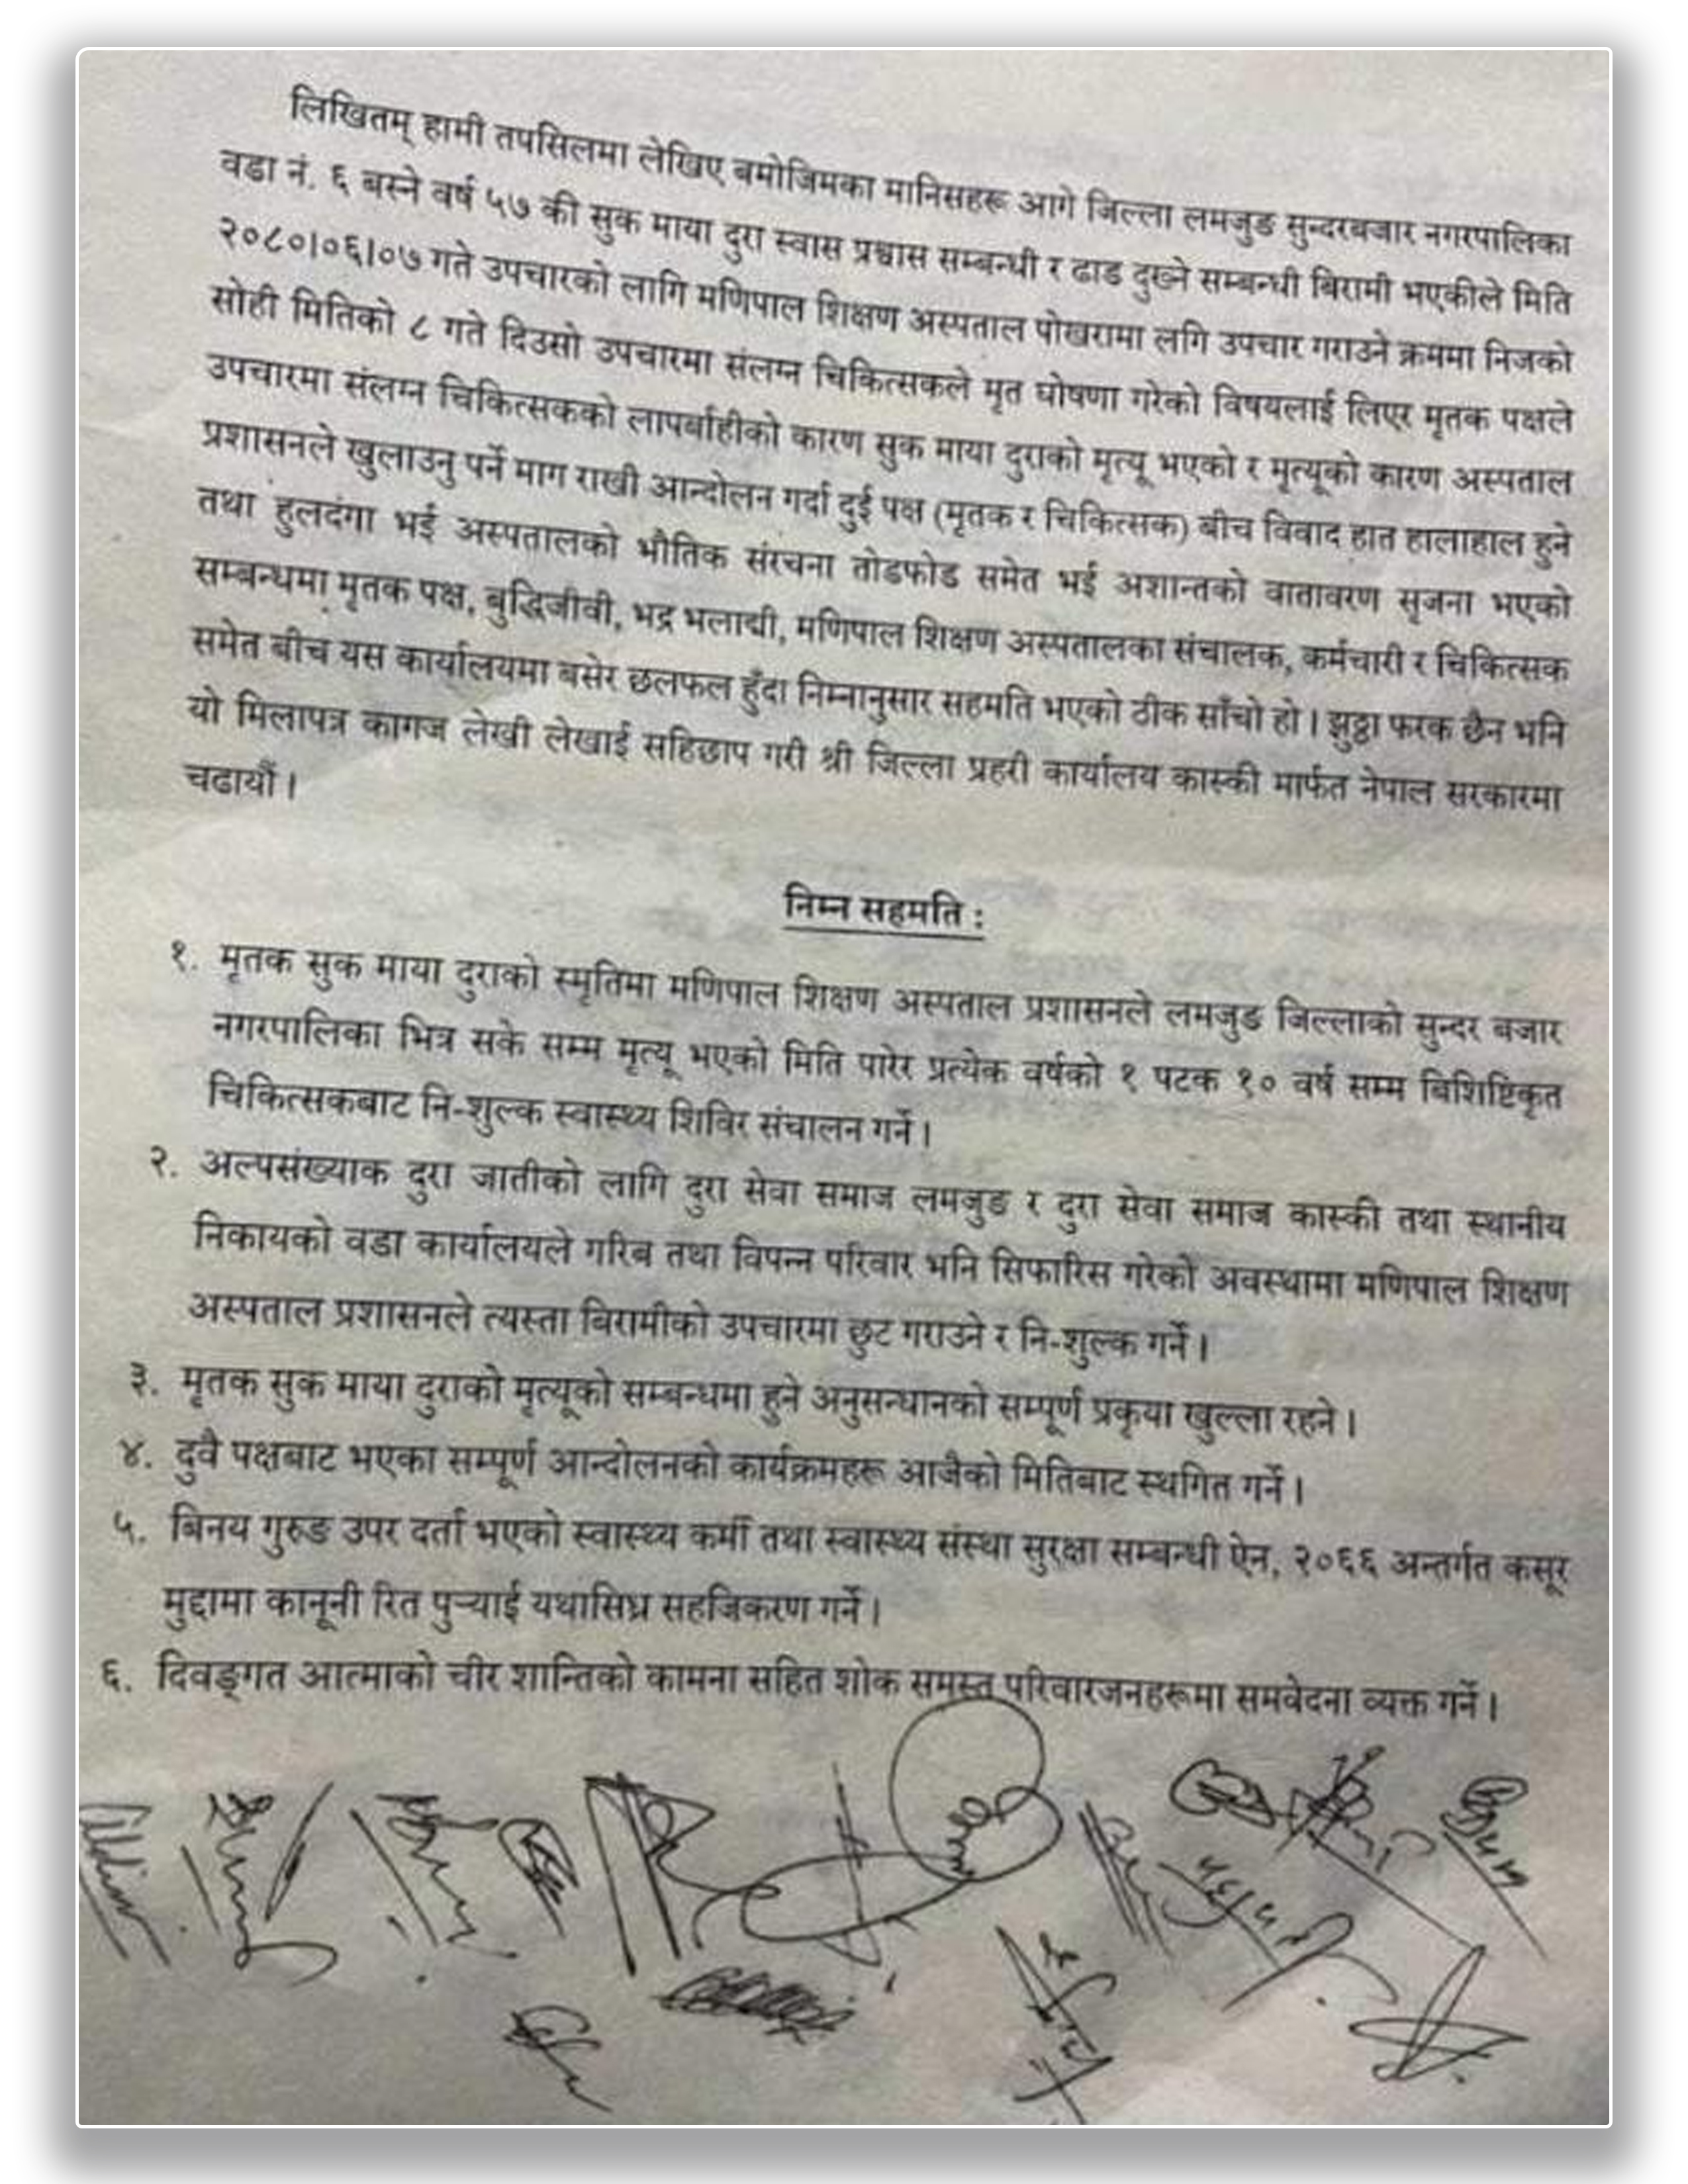 लिखितम् हामी तपसिलमा लेखिए बमोजिमका मानिसहरू आगे जिल्ला लमजुङ सुन्दरबजार नगरपालिका
वडा नं. ६ बस्ने वर्ष ५७ की सुक माया दुरा स्वास प्रश्वास सम्बन्धी र ढाड दुख्ने सम्बन्धी बिरामी भएकीले मिति
२०८०।०६।०७ गते उपचारको लागि मणिपाल शिक्षण अस्पताल पोखरामा लगि उपचार गराउने क्रममा निजको
सोही मितिको ८ गते दिउसो उपचारमा संलग्न चिकित्सकले मृत घोषणा गरेको विषयलाई लिएर मृतक पक्षले
उपचारमा संलग्न चिकित्सकको लापर्बाहीको कारण सुक माया दुराको मृत्यू भएको र मृत्यूको कारण अस्पताल
प्रशासनले खुलाउनु पर्ने माग राखी आन्दोलन गर्दा दुई पक्ष (मृतक र चिकित्सक) बीच विवाद हात हालाहाल हुने
तथा हुलदंगा भई अस्पतालको भौतिक संरचना तोडफोड समेत भई अशान्तको वातावरण सृजना भएको
सम्बन्धमा मृतक पक्ष, बुद्धिजीवी, भद्र भलाद्मी, मणिपाल शिक्षण अस्पतालका संचालक, कर्मचारी र चिकित्सक
समेत बीच यस कार्यालयमा बसेर छलफल हुँदा निम्नानुसार सहमति भएको ठीक साँचो हो । झुठ्ठा फरक छैन भनि
यो मिलापत्र कागज लेखी लेखाई सहिछाप गरी श्री जिल्ला प्रहरी कार्यालय कास्की मार्फत नेपाल सरकारमा
चढायौं ।
निम्न सहमति :
१. मृतक सुक माया दुराको स्मृतिमा मणिपाल शिक्षण अस्पताल प्रशासनले लमजुङ जिल्लाको सुन्दर बजार
नगरपालिका भित्र सके सम्म मृत्यू भएको मिति पारेर प्रत्येक वर्षको १ पटक १० वर्ष सम्म बिशिष्टिकृत
चिकित्सकबाट नि-शुल्क स्वास्थ्य शिविर संचालन गर्ने ।
२. अल्पसंख्याक दुरा जातीको लागि दुरा सेवा समाज लमजुङ र दुरा सेवा समाज कास्की तथा स्थानीय
निकायको वडा कार्यालयले गरिब तथा विपन्न परिवार भनि सिफारिस गरेको अवस्थामा मणिपाल शिक्षण
अस्पताल प्रशासनले त्यस्ता बिरामीको उपचारमा छुट गराउने र नि-शुल्क गर्ने ।
३. मृतक सुक माया दुराको मृत्यूको सम्बन्धमा हुने अनुसन्धानको सम्पूर्ण प्रकृया खुल्ला रहने ।
४. दुवै पक्षबाट भएका सम्पूर्ण आन्दोलनको कार्यक्रमहरू आजैको मितिबाट स्थगित गर्ने ।
५. बिनय गुरुङ उपर दर्ता भएको स्वास्थ्य कर्मी तथा स्वास्थ्य संस्था सुरक्षा सम्बन्धी ऐन, २०६६ अन्तर्गत कसूर
मुद्दामा कानूनी रित पुर्‍याई यथासिघ्र सहजिकरण गर्ने ।
६. दिवङ्गत आत्माको चीर शान्तिको कामना सहित शोक समस्त परिवारजनहरूमा समवेदना व्यक्त गर्ने ।